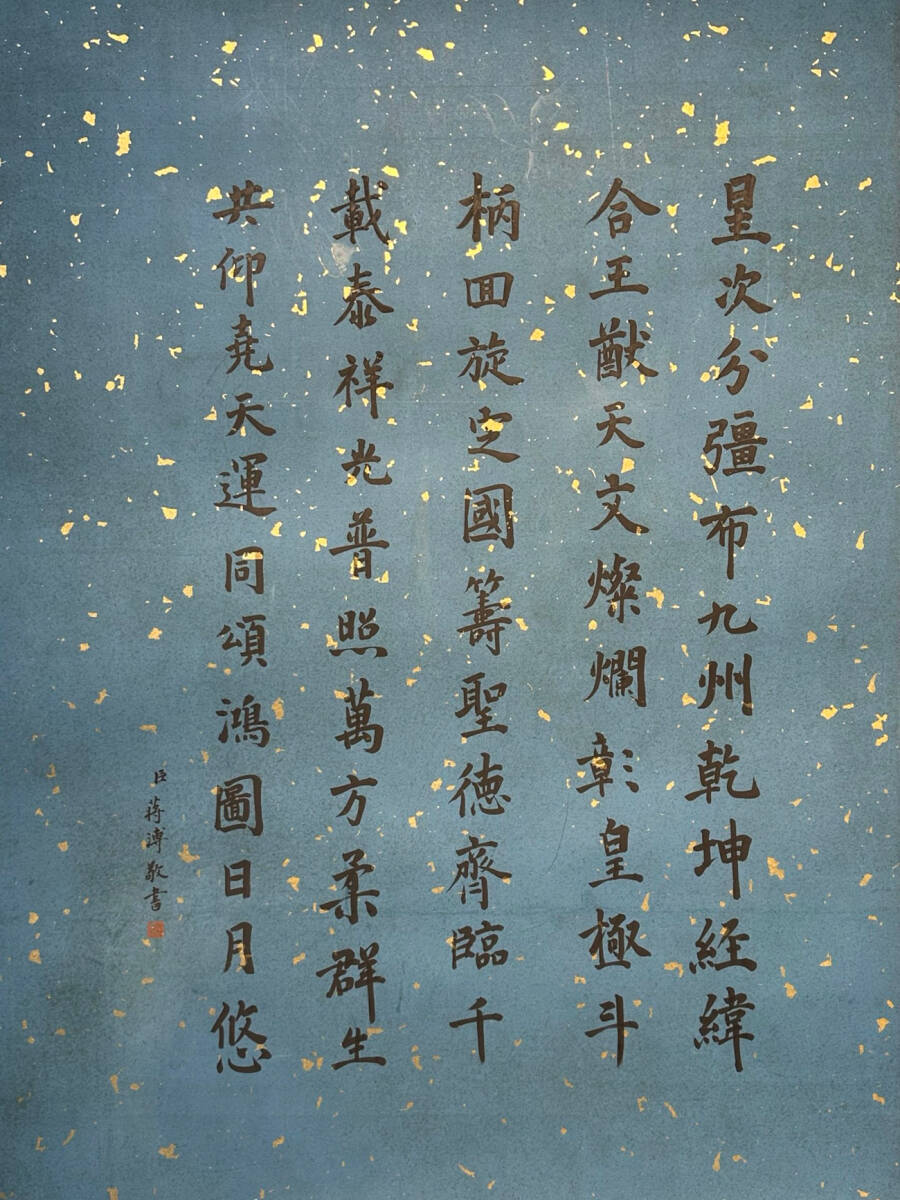 星次分彊布九州乾坤経緯
合王猷天文燦爛彰皇極斗
柄回旋定國籌聖徳齊臨千
載泰祥光普照萬方柔群生
共仰堯天運同頌鴻圖日月悠
臣蒋溥敬書